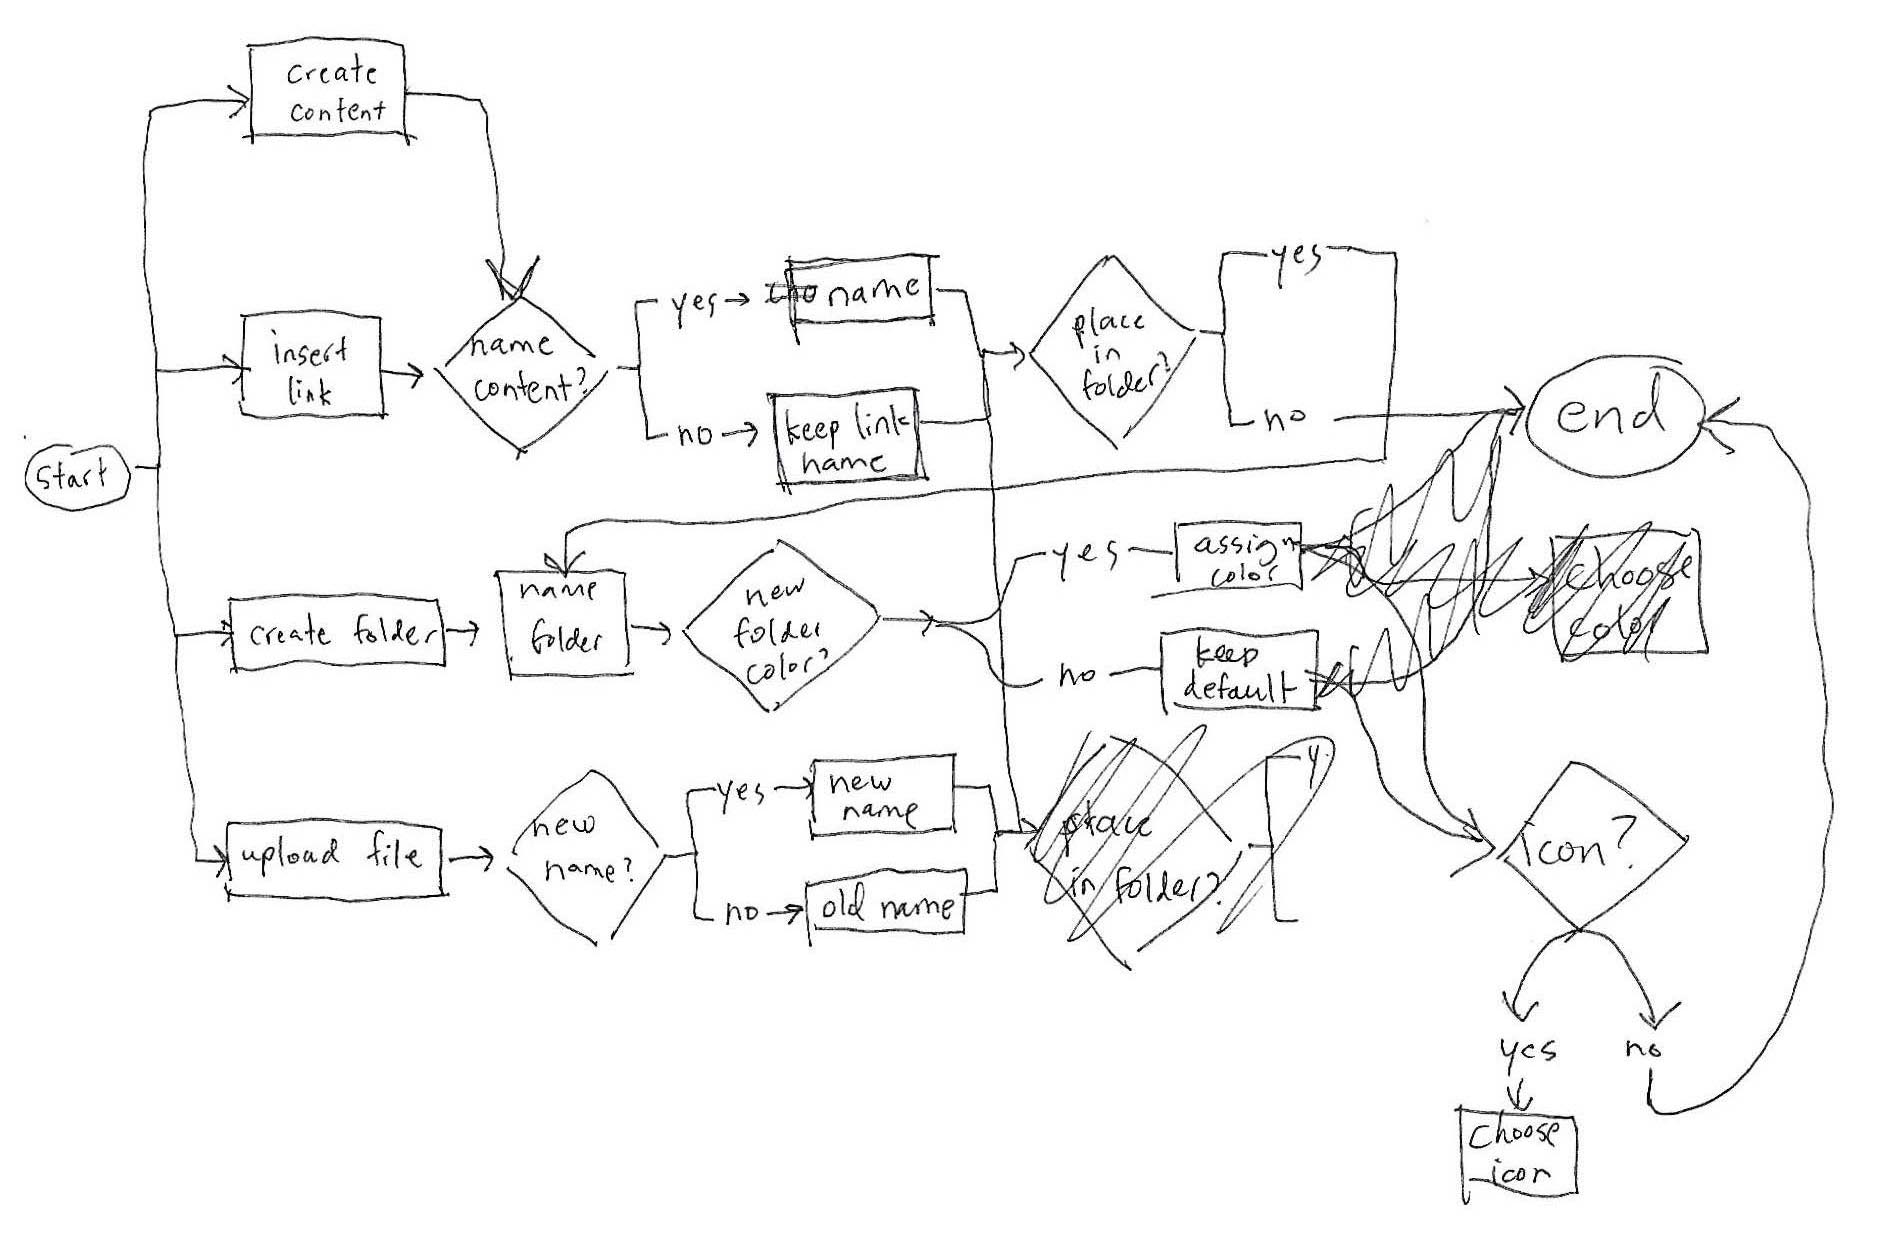 create
content
insert
link
name
content?
yes
name
no
keep link
name
place
in
folder?
yes
no
end
start
create folder
name
folder
new
folder
color?
yes
assign
color
no
keep
default
choose
color
upload file
new
name?
yes
new
name
no
old name
place
in folder?
y
icon?
yes
no
choose
icon